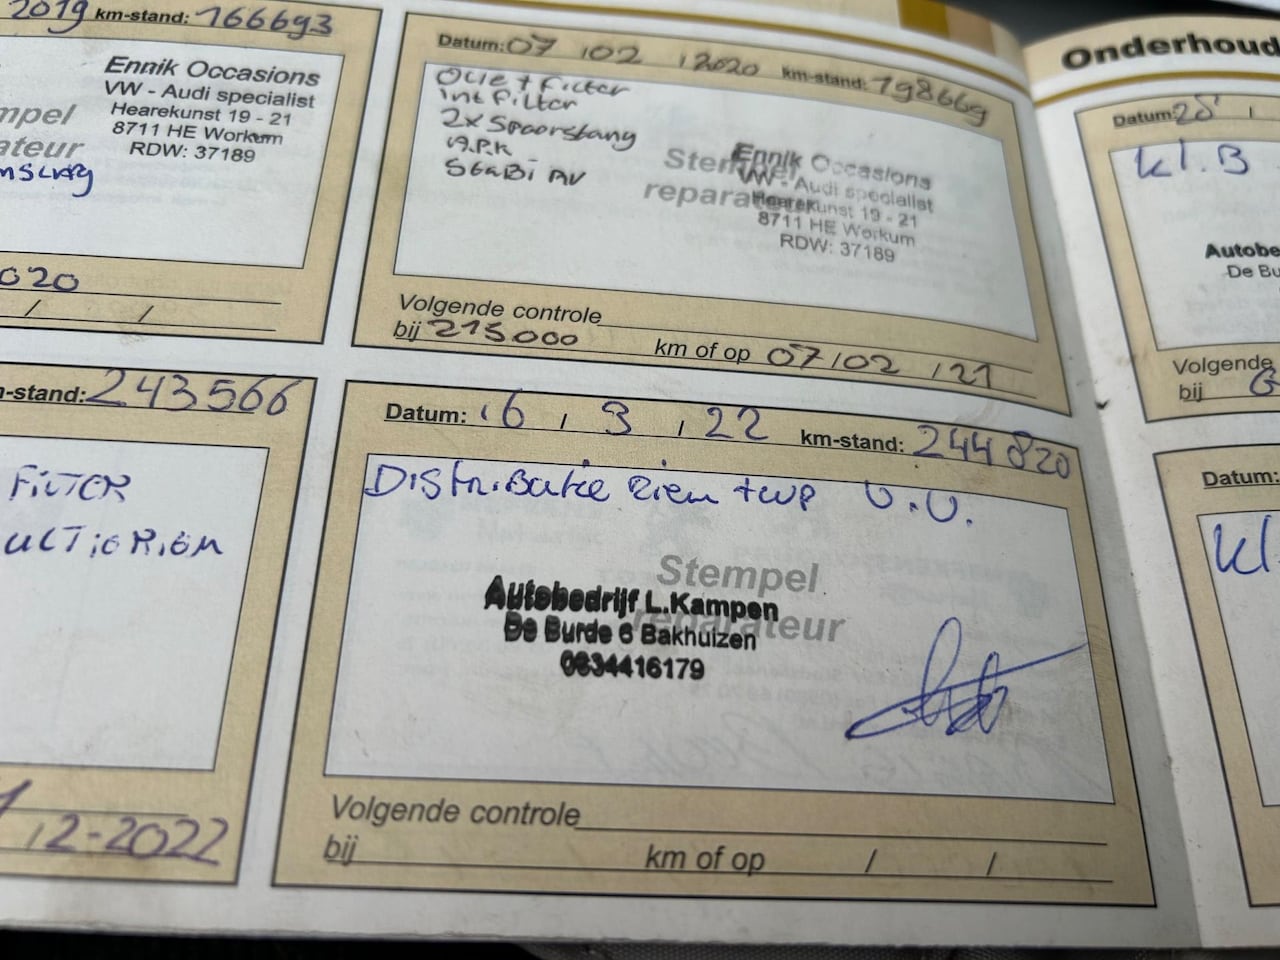 2019 km-stand: 166693
Ennik Occasions
VW - Audi specialist
Hearekunst 19 - 21
8711 HE Workum
RDW: 37189
2020
/ /
Datum: 07 / 02 / 2020 km-stand: 198669
Olie + Filter
Int Filter
2x Spoorstang
A.P.K
Stabi AV
Stempel
reparateur
Ennik Occasions
VW - Audi specialist
Hearekunst 19 - 21
8711 HE Workum
RDW: 37189
Volgende controle
bij 215000 km of op 07/02 /21
Onderhoud
Datum:
kl.B
Autobe
De Bu
Volgende
bij
-stand: 243566
FILTER
12-2022
Datum: 16 / 3 / 22 km-stand: 244820
Distributie riem + WP V.V.
Stempel
reparateur
Autobedrijf L.Kampen
De Burde 6 Bakhuizen
0634416179
Volgende controle
bij km of op / /
Datum:
kl.